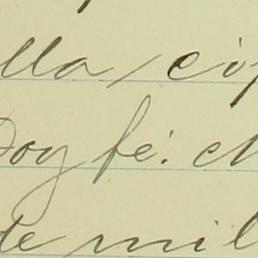 lla, cop
Doy fe. M
de mil